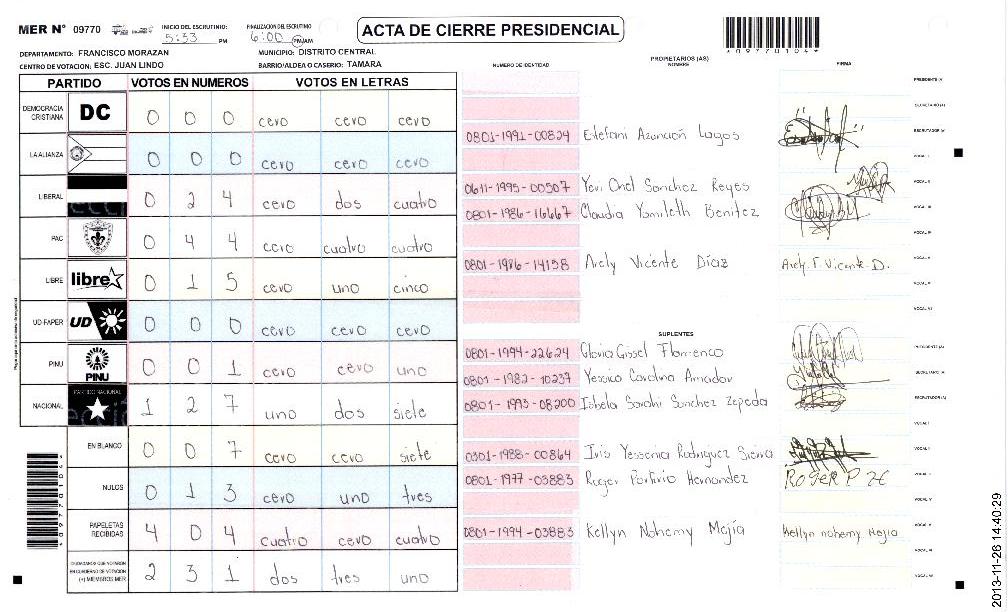 MER N° 09770
INICIO DEL ESCRUTINIO:
5:33 PM
FINALIZACION DEL ESCRUTINIO
6:00 PM/AM
ACTA DE CIERRE PRESIDENCIAL
*09770104*
DEPARTAMENTO: FRANCISCO MORAZAN
MUNICIPIO: DISTRITO CENTRAL
CENTRO DE VOTACION: ESC. JUAN LINDO
BARRIO/ALDEA O CASERIO: TAMARA
NUMERO DE IDENTIDAD
PROPIETARIOS (AS)
NOMBRE
FIRMA
PARTIDO VOTOS EN NUMEROS VOTOS EN LETRAS
DEMOCRACIA CRISTIANA DC 0 0 0 cero cero cero
LA ALIANZA 0 0 0 cero cero cero
LIBERAL 0 2 4 cero dos cuatro
PAC 0 4 4 cero cuatro cuatro
LIBRE libre 0 1 5 cero uno cinco
UD-FAPER UD 0 0 0 cero cero cero
PINU PINU 0 0 1 cero cero uno
NACIONAL PARTIDO NACIONAL 1 2 7 uno dos siete
EN BLANCO 0 0 7 cero cero siete
NULOS 0 1 3 cero uno tres
PAPELETAS RECIBIDAS 4 0 4 cuatro cero cuatro
CIUDADANOS QUE VOTARON EN CUADERNO DE VOTACION (+) MIEMBROS MER 2 3 1 dos tres uno
PRESIDENTE (A)
SECRETARIO (A)
0801-1991-00824 Estefani Asuncion Lagos ESCRUTADOR (A)
VOCAL I
0611-1995-00507 Yeri Onel Sanchez Reyes VOCAL II
0801-1986-16667 Claudia Yamileth Benitez VOCAL III
VOCAL IV
0801-1986-14158 Arely Vicente Díaz Arely. F. Vicente D. VOCAL V
VOCAL VI
SUPLENTES
0801-1994-22624 Gloria Gissel Flamenco PRESIDENTE (A)
0801-1982-10237 Yessica Carolina Amador SECRETARIO (A)
0801-1993-08200 Isbela Sarahi Sanchez Zepeda ESCRUTADOR (A)
VOCAL I
0301-1988-00864 Iris Yessenia Rodriguez Sierra VOCAL II
0801-1977-03883 Roger Porfirio Hernandez ROGER P
0801-1994-03883 Kellyn Nohemy Mejía Kellyn nohemy Mejia
*09770104*
2013-11-26 14:40:29